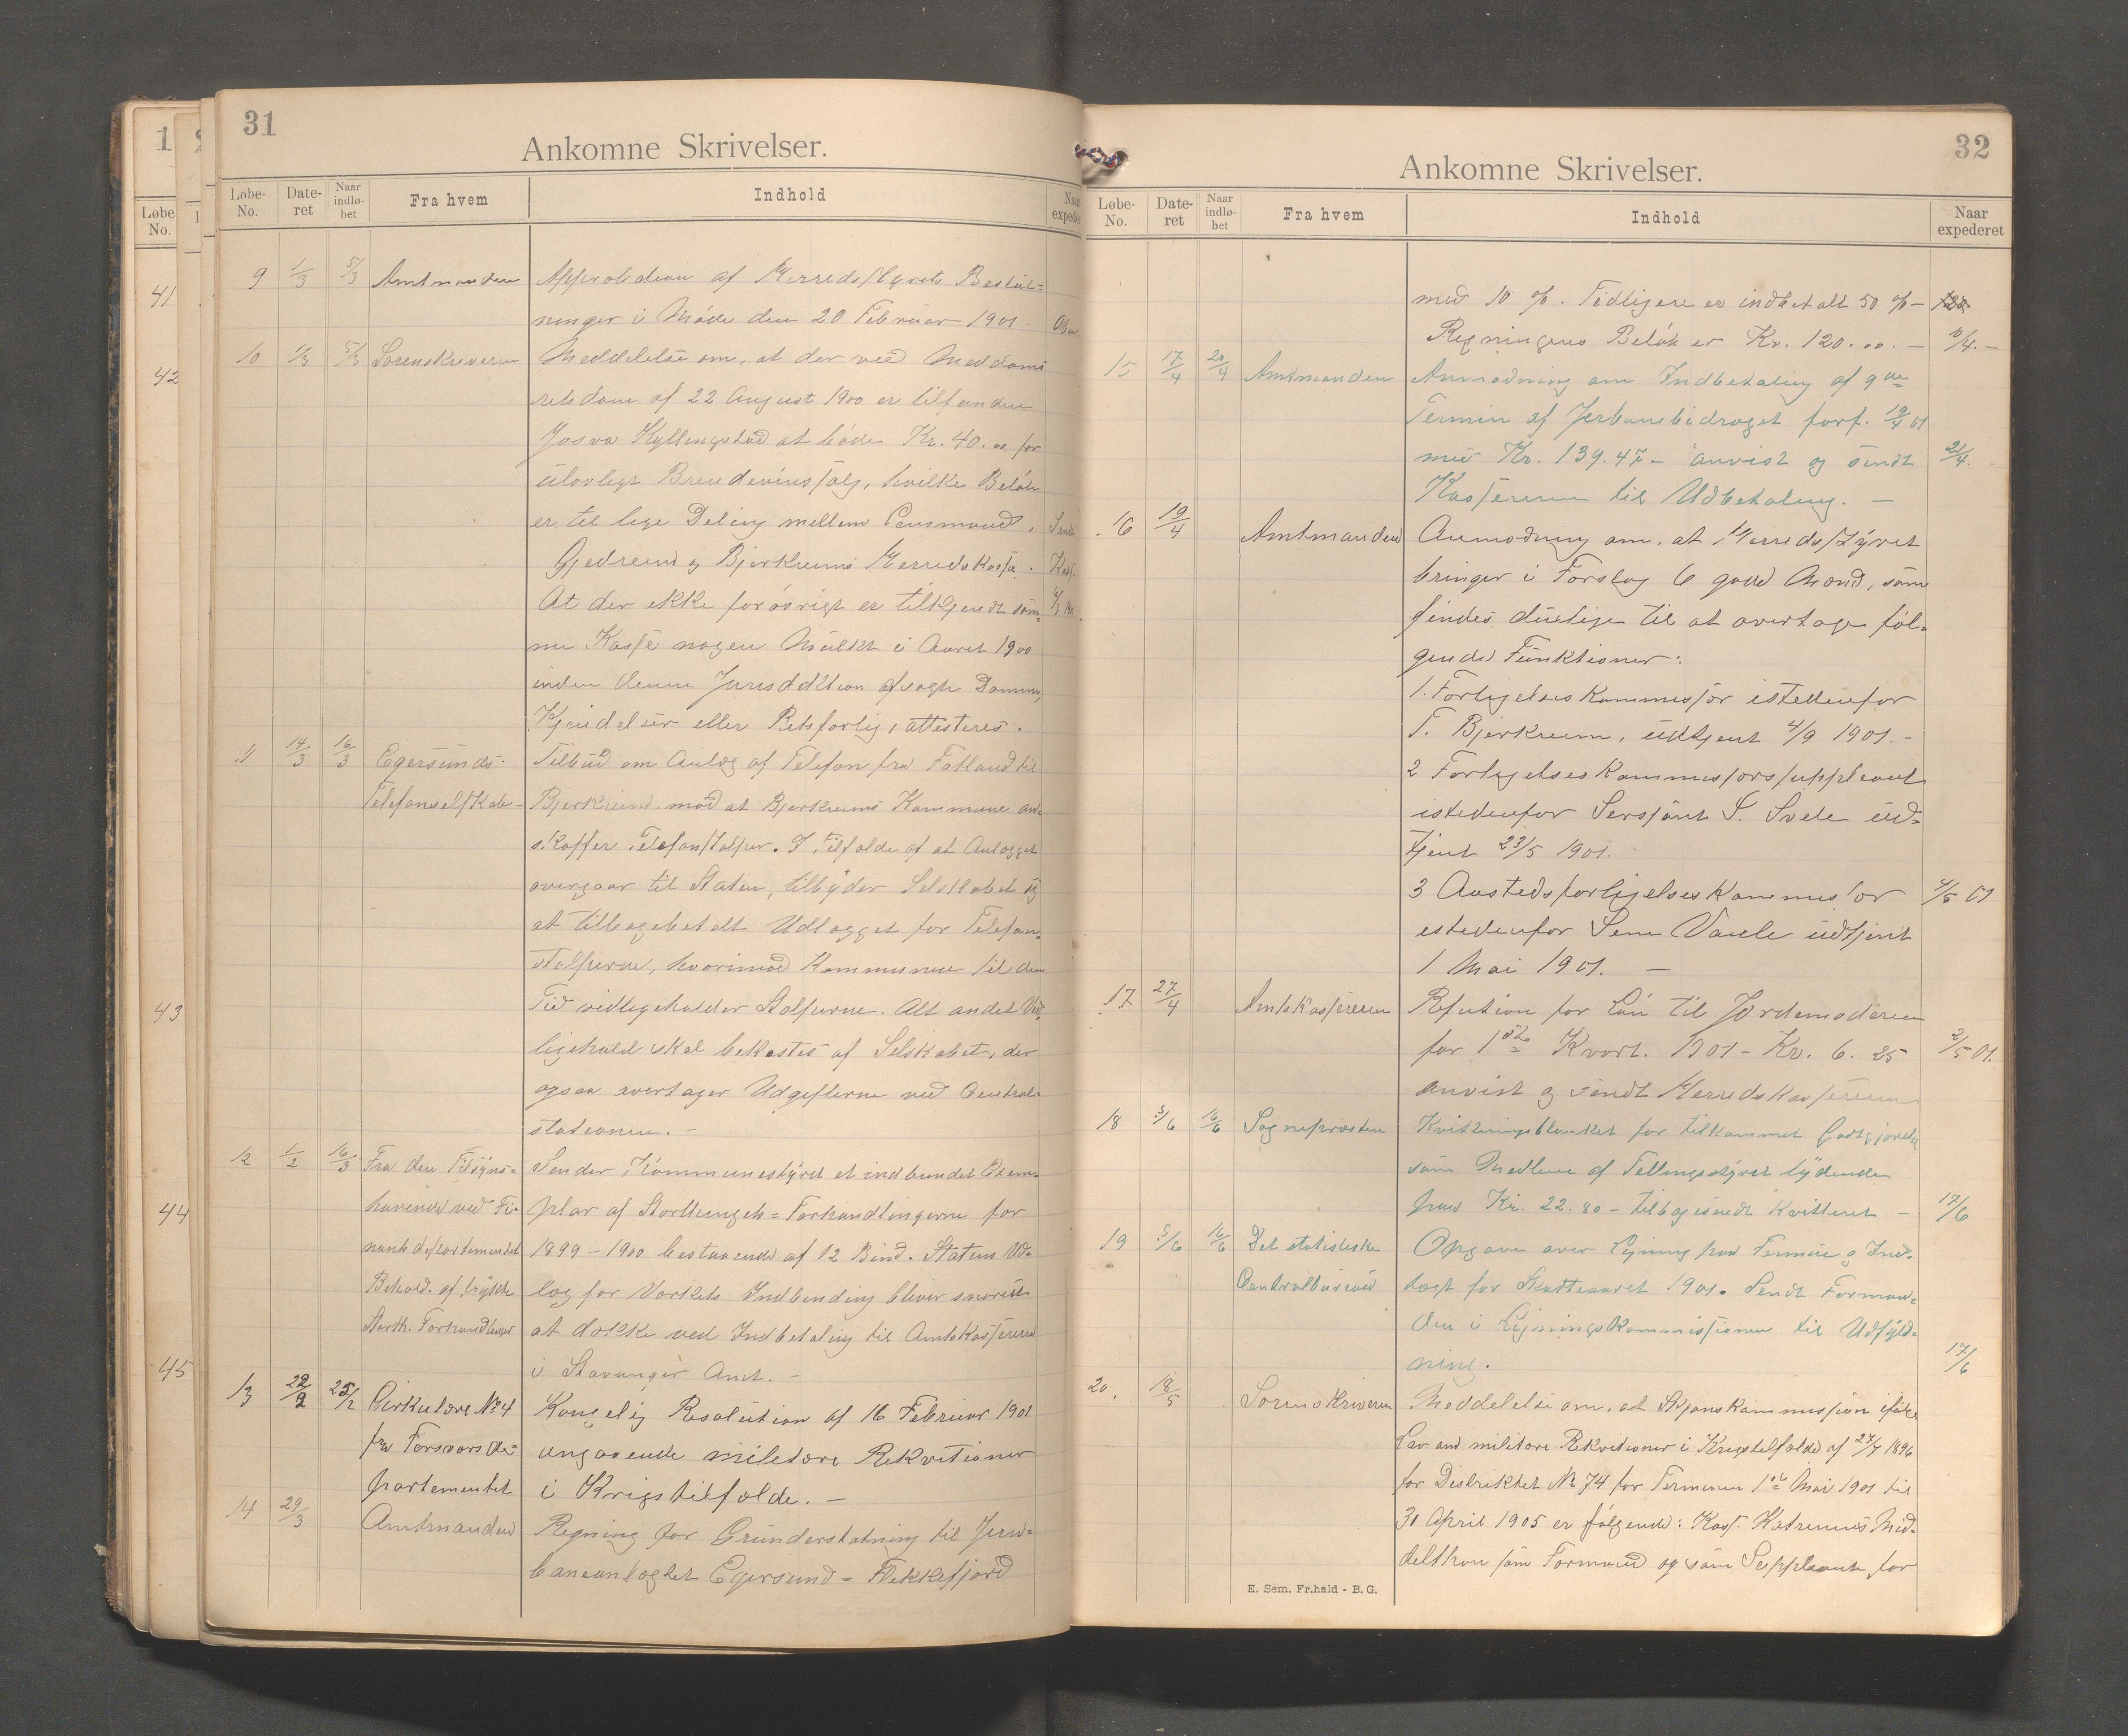 31
Ankomne Skrivelser.
Løbe-No. Date-ret Naar indlø-bet Fra hvem Indhold Naar expederet
9 1/3 5/3 Amtmanden Approbation af Herredsstyrets Beslut-
ninger i Møde den 20 Februar 1901.
10 1/3 5/3 Sorenskriveren Meddelelse om, at der ved Meddoms
retsdom af 22 August 1900 er tilfunden
Josva Kyllingstad at bøde Kr. 40.00 for
ulovligt Brendevinssalg, hvilke Beløb
er til lige Deling mellem Lensmand
Gjedrem og Bjerkreims Herredskasse.
At der ikke forøvrigt er tilkjendt sam-
me Kasse nogen Mulkt i Aaret 1900
inden denne Jurisdiktion afsagte Domme,
Kjendelser eller Retsforlig, attesteres.
11 14/3 16/3 Egersunds Tilbud om Anlæg af Telefon fra Fotland til
Telefonselskab Bjerkreim mod at Bjerkreims Kommune an-
skaffer Telefonstolper. I Tilfælde af at Anlægget
overgaar til Staten, tilbyder Selskabet sig
at tilbagebetalt Udlægget for Telefon-
stolperne, hvorimod Kommunen til den
Tid vedligeholder Stolperne. Alt andet Ved-
ligehold skal bekostes af Selskabet, der
ogsaa overtager Udgifterne ved Central-
stationen. -
12 1/2 16/3 Fra den Tilsyns- Sender Kommunestyret et indbundet Exem-
havende ved Fi- plar af Storthingets-Forhandlingerne for
nantsdepartementet 1899-1900 bestaaende af 12 Bind. Statens Ud-
Behold. af trykte læg for Verkets Indbinding bliver snarest
Storth. Forhandlinger at dække ved Indbetaling til Amtskassereren
i Stavanger Amt. -
13 22/2 25/2 Cirkulære No 4 Kongelig Resolution af 16 Februar 1901
fra Forsvarsde- angaaende militære Rekvisitioner
partementet i Krigstilfælde. -
14 29/3 Amtmanden Regning for Grunderstatning til Jern-
baneanlægget Egersund - Flekkefjord
32
Ankomne Skrivelser.
Løbe-No. Date-ret Naar indlø-bet Fra hvem Indhold Naar expederet
med 10 %. Tidligere er indbetalt 50 % -
Regningens Beløb er Kr. 120.00. -
15 17/4 20/4 Amtmanden Anmodning om Indbetaling af 9de
Termin af Jerbanebidraget forf. 19/4 01
med Kr. 139.47 - anvist og sendt 21/4.
Kassereren til Udbetaling. -
16 19/4 Amtmanden Anmodning om, at Herredsstyret
bringer i Forslag 6 gode Mænd, som
findes duelige til at overtage føl-
gende Funktioner:
1. Forligelseskommissær istedenfor
T. Bjerkreim, udtjent 4/9 1901. -
2 Forligelseskommissærsuppleant
istedenfor Sersjant S. Svele ud-
tjent 23/5 1901.
3 Aastedsforligelseskommissær 4/5 01
istedenfor Sem Vaule udtjent
1 Mai 1901. -
17 27/4 Amtskassereren Refusion for Løn til Jordemoderen
for 1ste Kvart. 1901 - Kr. 6.25 2/5 01.
anvist og sendt Herredskassereren
18 5/6 16/6 Sognepræsten Kvitteringsblanket for tilkommet Godtgjørelse
som Medlem af Tellingsstyret lydende
paa Kr. 22.80 - tilbagesendt kvitteret - 17/6
19 5/6 16/6 Det statistiske Opgave over Ligning paa Formue og Ind-
Centralbureau tægt for Skatteaaret 1901. Sendt Forman-
den i Ligningskommissionen til Udfyld-
ning. 17/6
20. 18/5 Sorenskriveren Meddelelse om, at Skjønskommission ifølge
Lov om militære Rekvisitioner i Krigstilfælde af 27/7 1896
for Distriktet No 74 for Terminen 1ste Mai 1901 til
30 April 1905 er følgende: Kass. Katrinus Mid-
delthon som Formand og som Suppleant for
E. Sem. Fr.hald - B.G.
1
Løbe No.
41
42
43
44
45